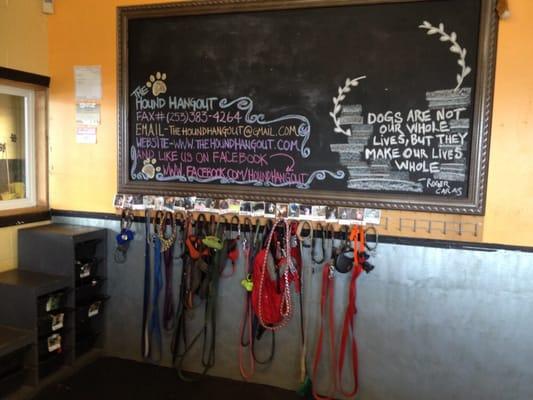 THE
HOUND HANGOUT
FAX# (253)-383-4264
EMAIL-THEHOUNDHANGOUT@GMAIL.COM
WEBSITE-WWW.THEHOUNDHANGOUT.COM
AND LIKE US ON FACEBOOK
WWW.FACEBOOK.COM/HOUNDHANGOUT
DOGS ARE NOT
OUR WHOLE
LIVES, BUT THEY
MAKE OUR LIVES
WHOLE
- ROGER
CARAS